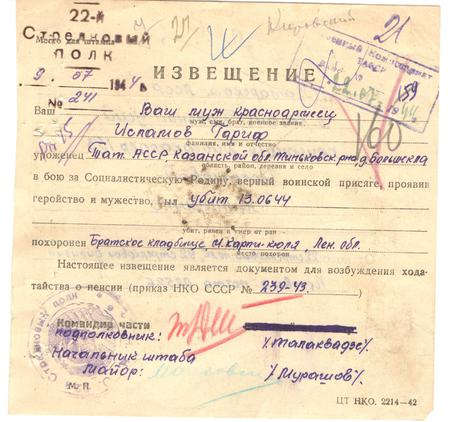 22-й
Стрелковый
ПОЛК
Место для штампа
Кировский
21
159
160
9. 07 1944 г.
№ 241
ИЗВЕЩЕНИЕ
Ваш Ваш муж красноармеец
муж, сын, брат, военное звание
Исламов Гариф
фамилия, имя и отчество
уроженец Тат. АССР Казанской обл.
область, район, деревня и село
в бою за Социалистическую Родину, верный воинской присяге, проявив
геройство и мужество, был убит 13.06.44
убит, ранен и умер от ран
похоронен Братское кладбище, Лен. обл.
место похорон
Настоящее извещение является документом для возбуждения хода-
тайства о пенсии (приказ НКО СССР № 239-43.
Командир части
подполковник: /Талаквадзе/.
Начальник штаба
Майор: /Мурашов/.
СТРЕЛКОВЫЙ ПОЛК
М. П.
ЦТ НКО. 2214—42